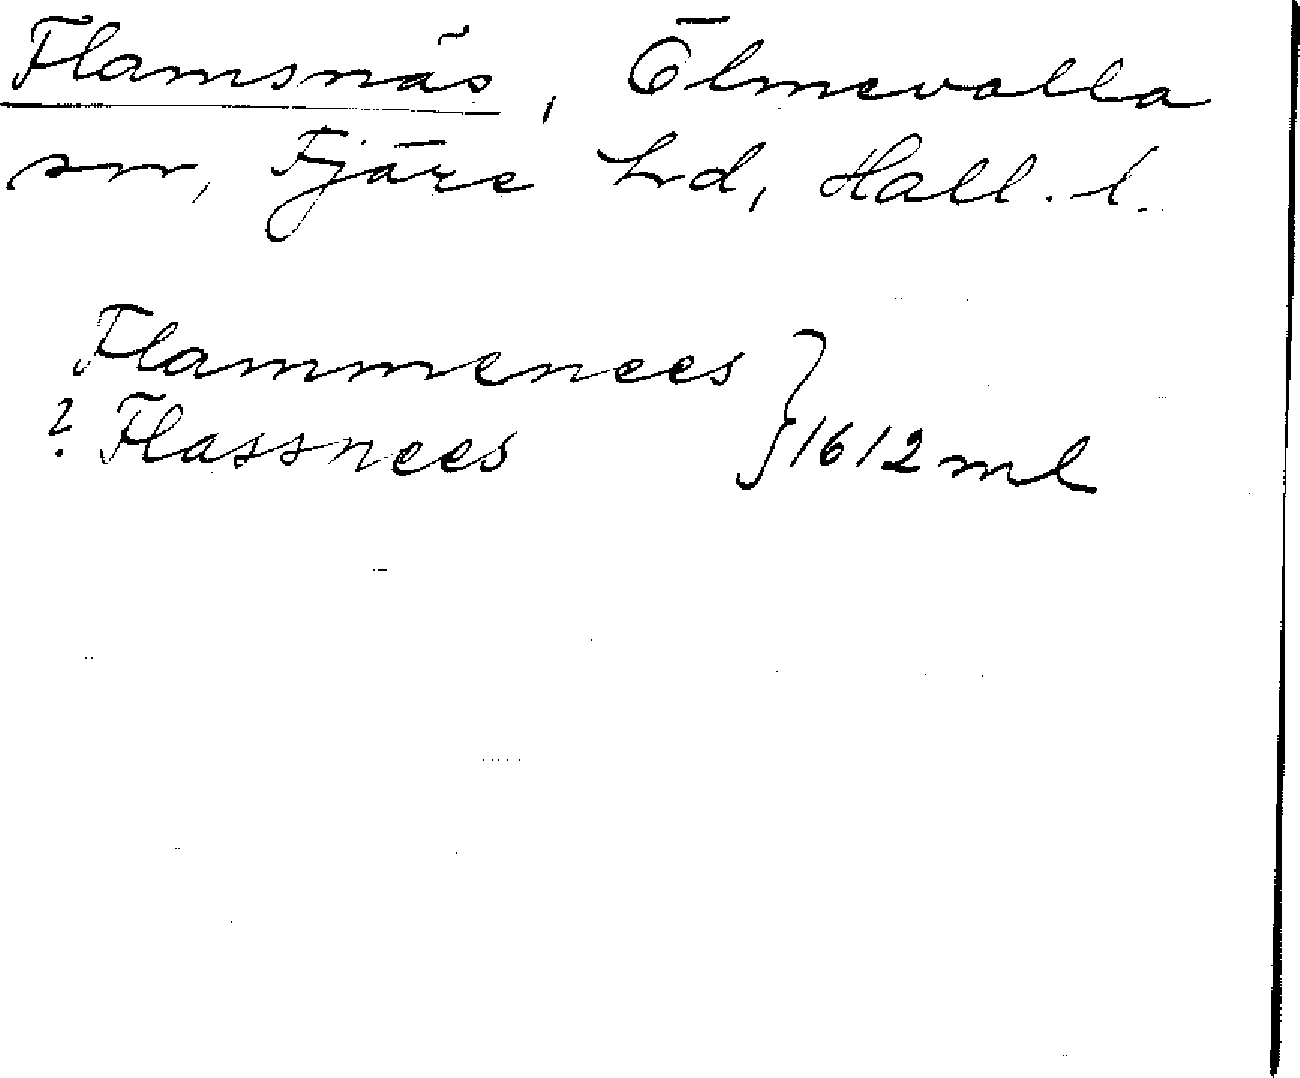 Flamsnäs, Ölmevalla
sn, Fjäre hd, Hall. l.
Flammenees
? Flassnees } 1612 ml